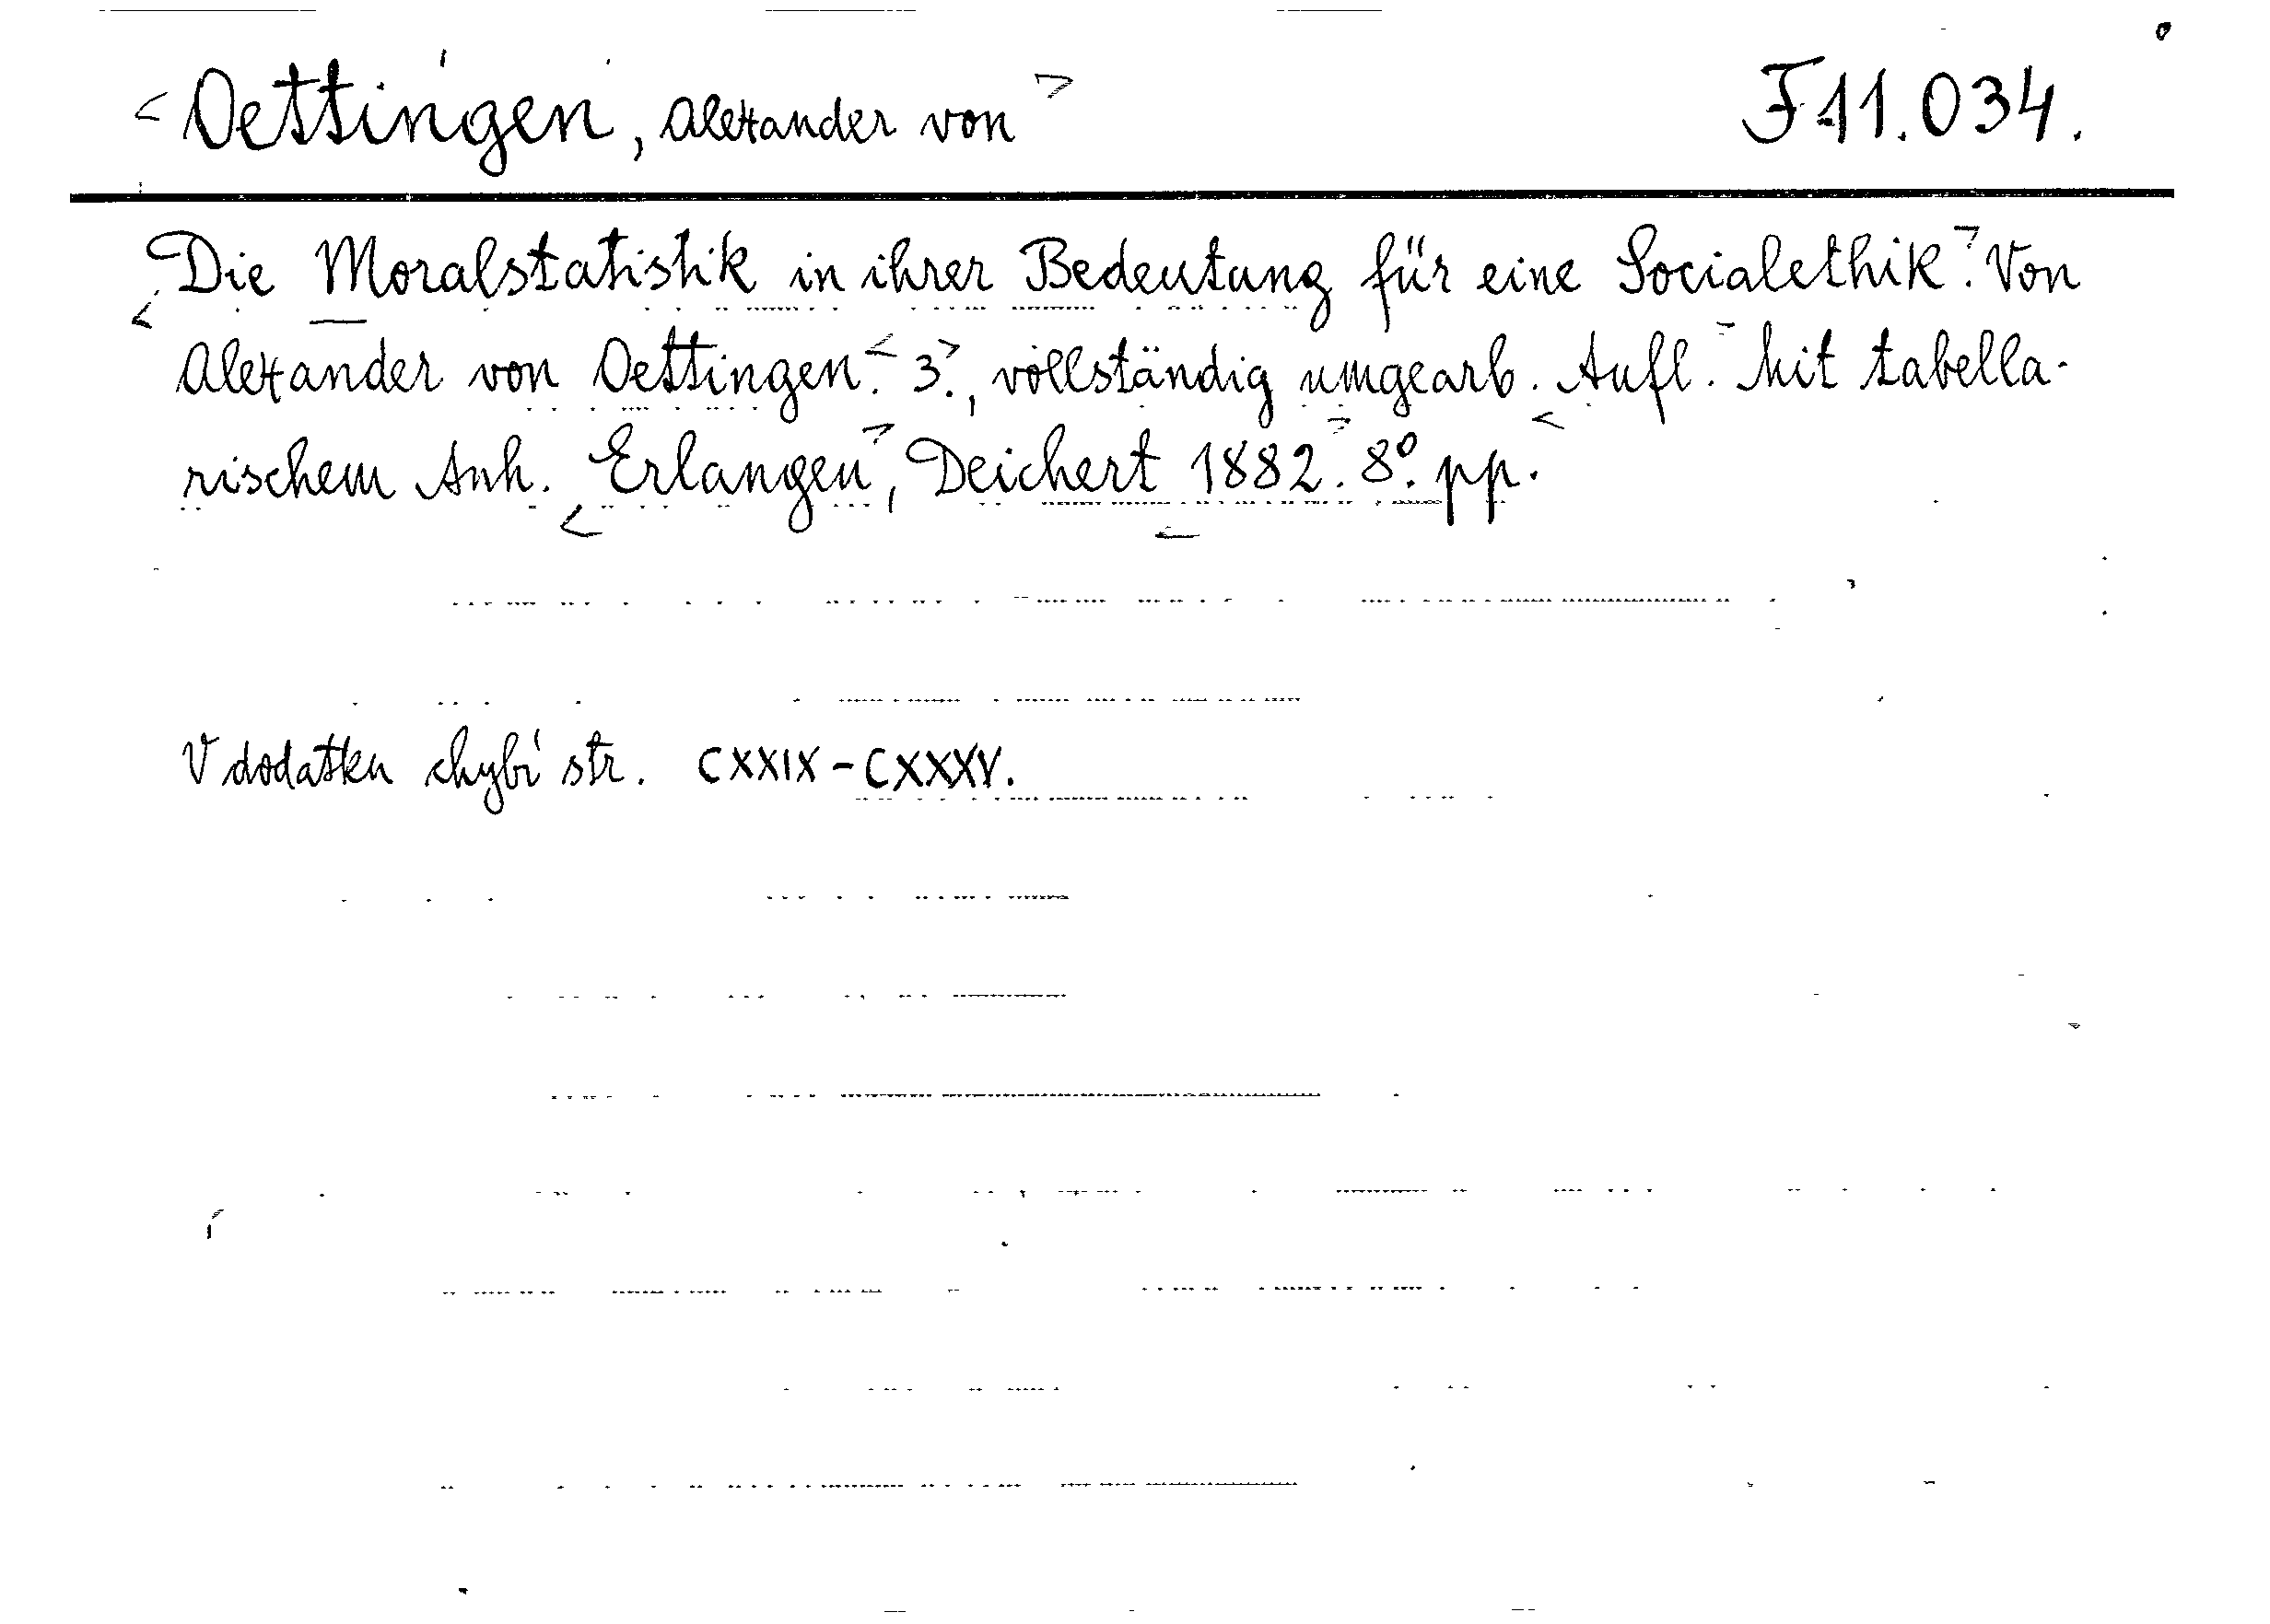 <Oettingen, Alexander von> F 11.034.
<Die Moralstatistik in ihrer Bedeutung für eine Socialethik>. Von
Alexander von Oettingen. <3.>, vollständig umgearb. Aufl. Mit tabella-
rischem Anh. <Erlangen>, Deichert <1882>. 8°. pp.
V dodatku chybí str. CXXIX-CXXXV.